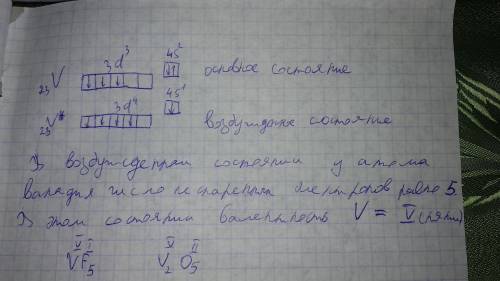 3d³ 4s²
₂₃V ↓ ↓ ↓ ↑↓ основное состояние
3d⁴ 4s¹
₂₃V* ↓ ↓ ↓ ↓ ↓ возбужденное состояние
В возбужденном состоянии у атома
ванадия число неспаренных электронов равно 5.
В этом состоянии валентность V = V (пяти)
V I V II
VF₅ V₂O₅